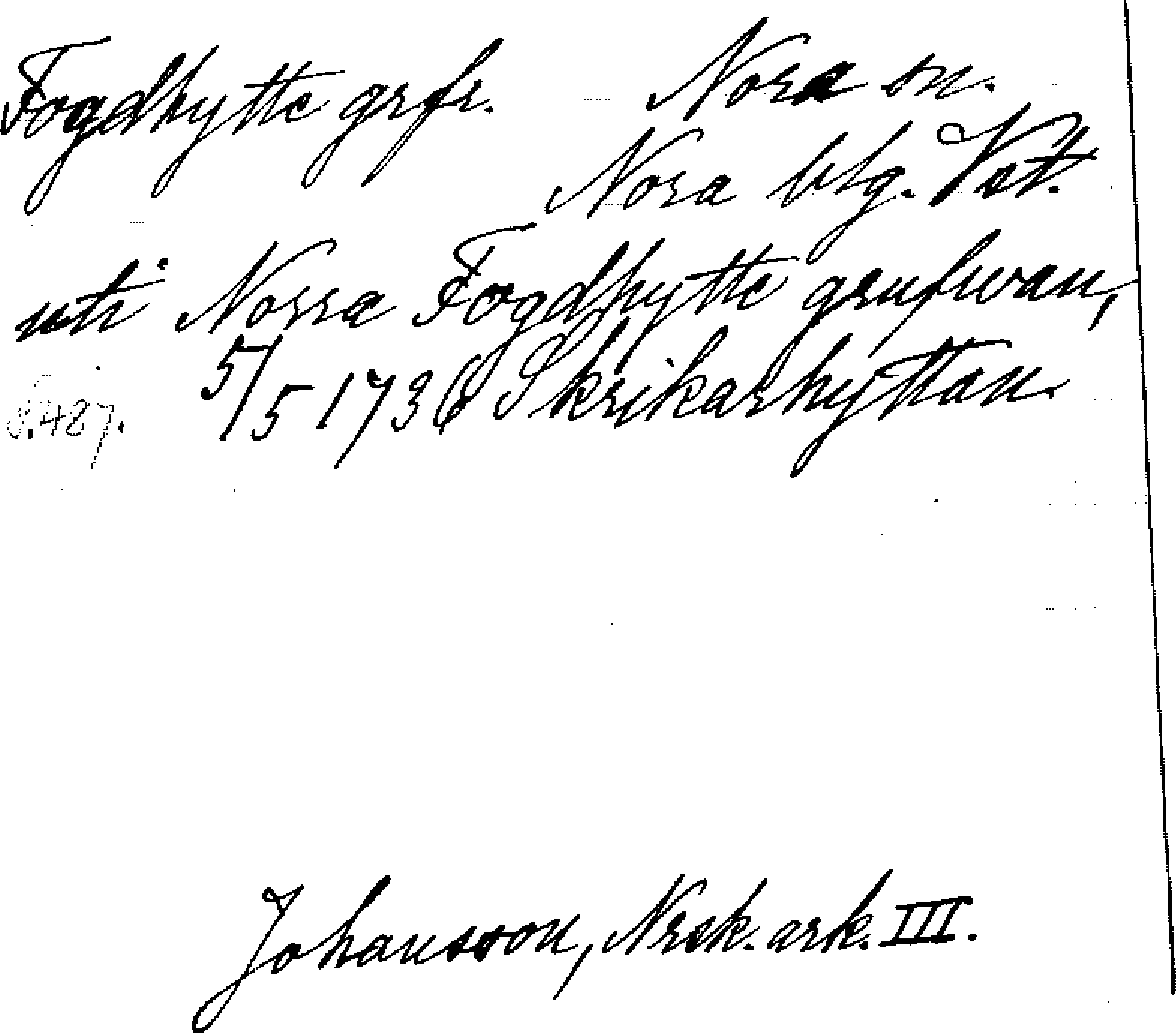 Fogdhytte grfr. Nora sn.
Nora blg. Vst.
uti Norra Fogdhytte grufwan,
5/5 1736 Skrikarhyttan.
S. 487.
Johansson, Nrsk. ark. III.